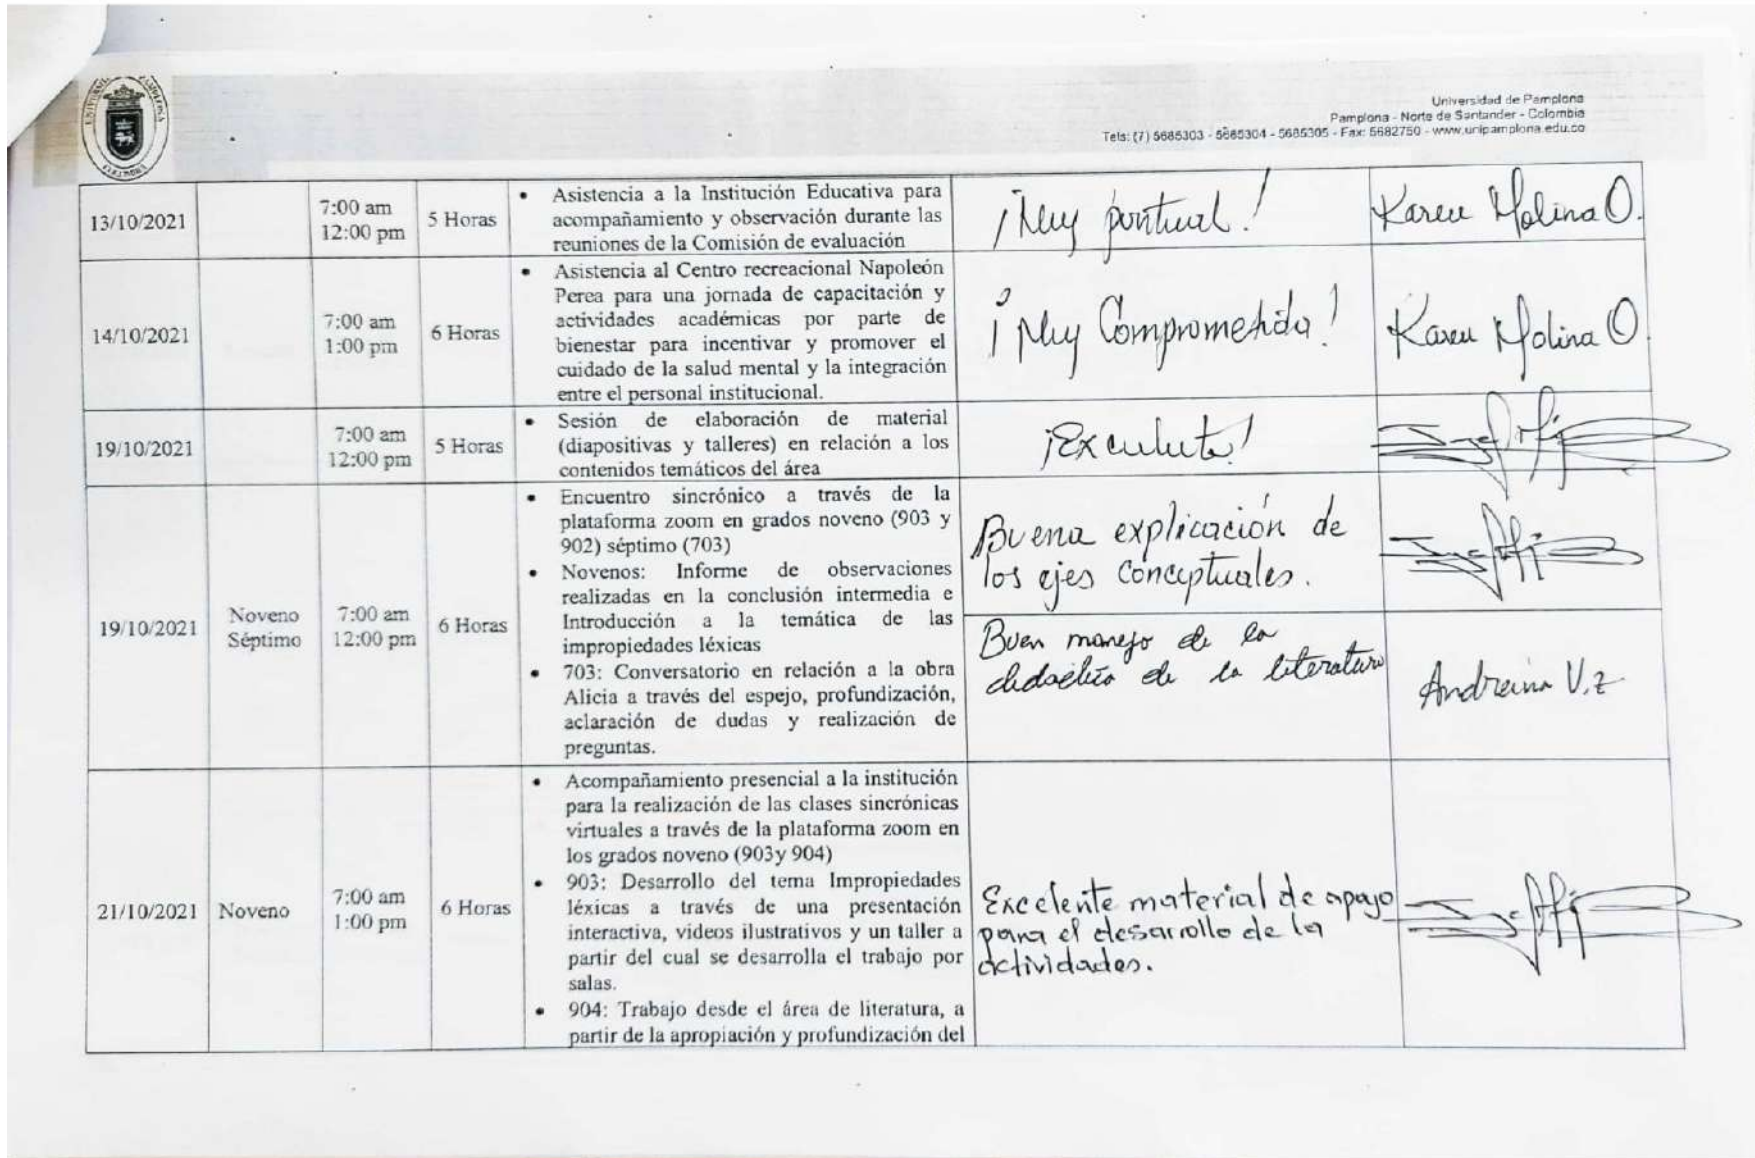 Universidad de Pamplona
Pamplona - Norte de Santander - Colombia
Tels: (7) 5685303 - 5685304 - 5685305 - Fax: 5682750 - www.unipamplona.edu.co
13/10/2021
7:00 am
12:00 pm
5 Horas
• Asistencia a la Institución Educativa para
acompañamiento y observación durante las
reuniones de la Comisión de evaluación
¡Muy puntual!
Karen Molina O.
14/10/2021
7:00 am
1:00 pm
6 Horas
• Asistencia al Centro recreacional Napoleón
Perea para una jornada de capacitación y
actividades académicas por parte de
bienestar para incentivar y promover el
cuidado de la salud mental y la integración
entre el personal institucional.
¡Muy Comprometida!
Karen Molina O
19/10/2021
7:00 am
12:00 pm
5 Horas
• Sesión de elaboración de material
(diapositivas y talleres) en relación a los
contenidos temáticos del área
¡Excelente!
19/10/2021
Noveno
Séptimo
7:00 am
12:00 pm
6 Horas
• Encuentro sincrónico a través de la
plataforma zoom en grados noveno (903 y
902) séptimo (703)
• Novenos: Informe de observaciones
realizadas en la conclusión intermedia e
Introducción a la temática de las
impropiedades léxicas
• 703: Conversatorio en relación a la obra
Alicia a través del espejo, profundización,
aclaración de dudas y realización de
preguntas.
Buena explicación de
los ejes conceptuales.
Buen manejo de la
didáctica de la literatura
Andreina V.z
21/10/2021
Noveno
7:00 am
1:00 pm
6 Horas
• Acompañamiento presencial a la institución
para la realización de las clases sincrónicas
virtuales a través de la plataforma zoom en
los grados noveno (903y 904)
• 903: Desarrollo del tema Impropiedades
léxicas a través de una presentación
interactiva, videos ilustrativos y un taller a
partir del cual se desarrolla el trabajo por
salas.
• 904: Trabajo desde el área de literatura, a
partir de la apropiación y profundización del
Excelente material de apoyo
para el desarrollo de la
actividades.